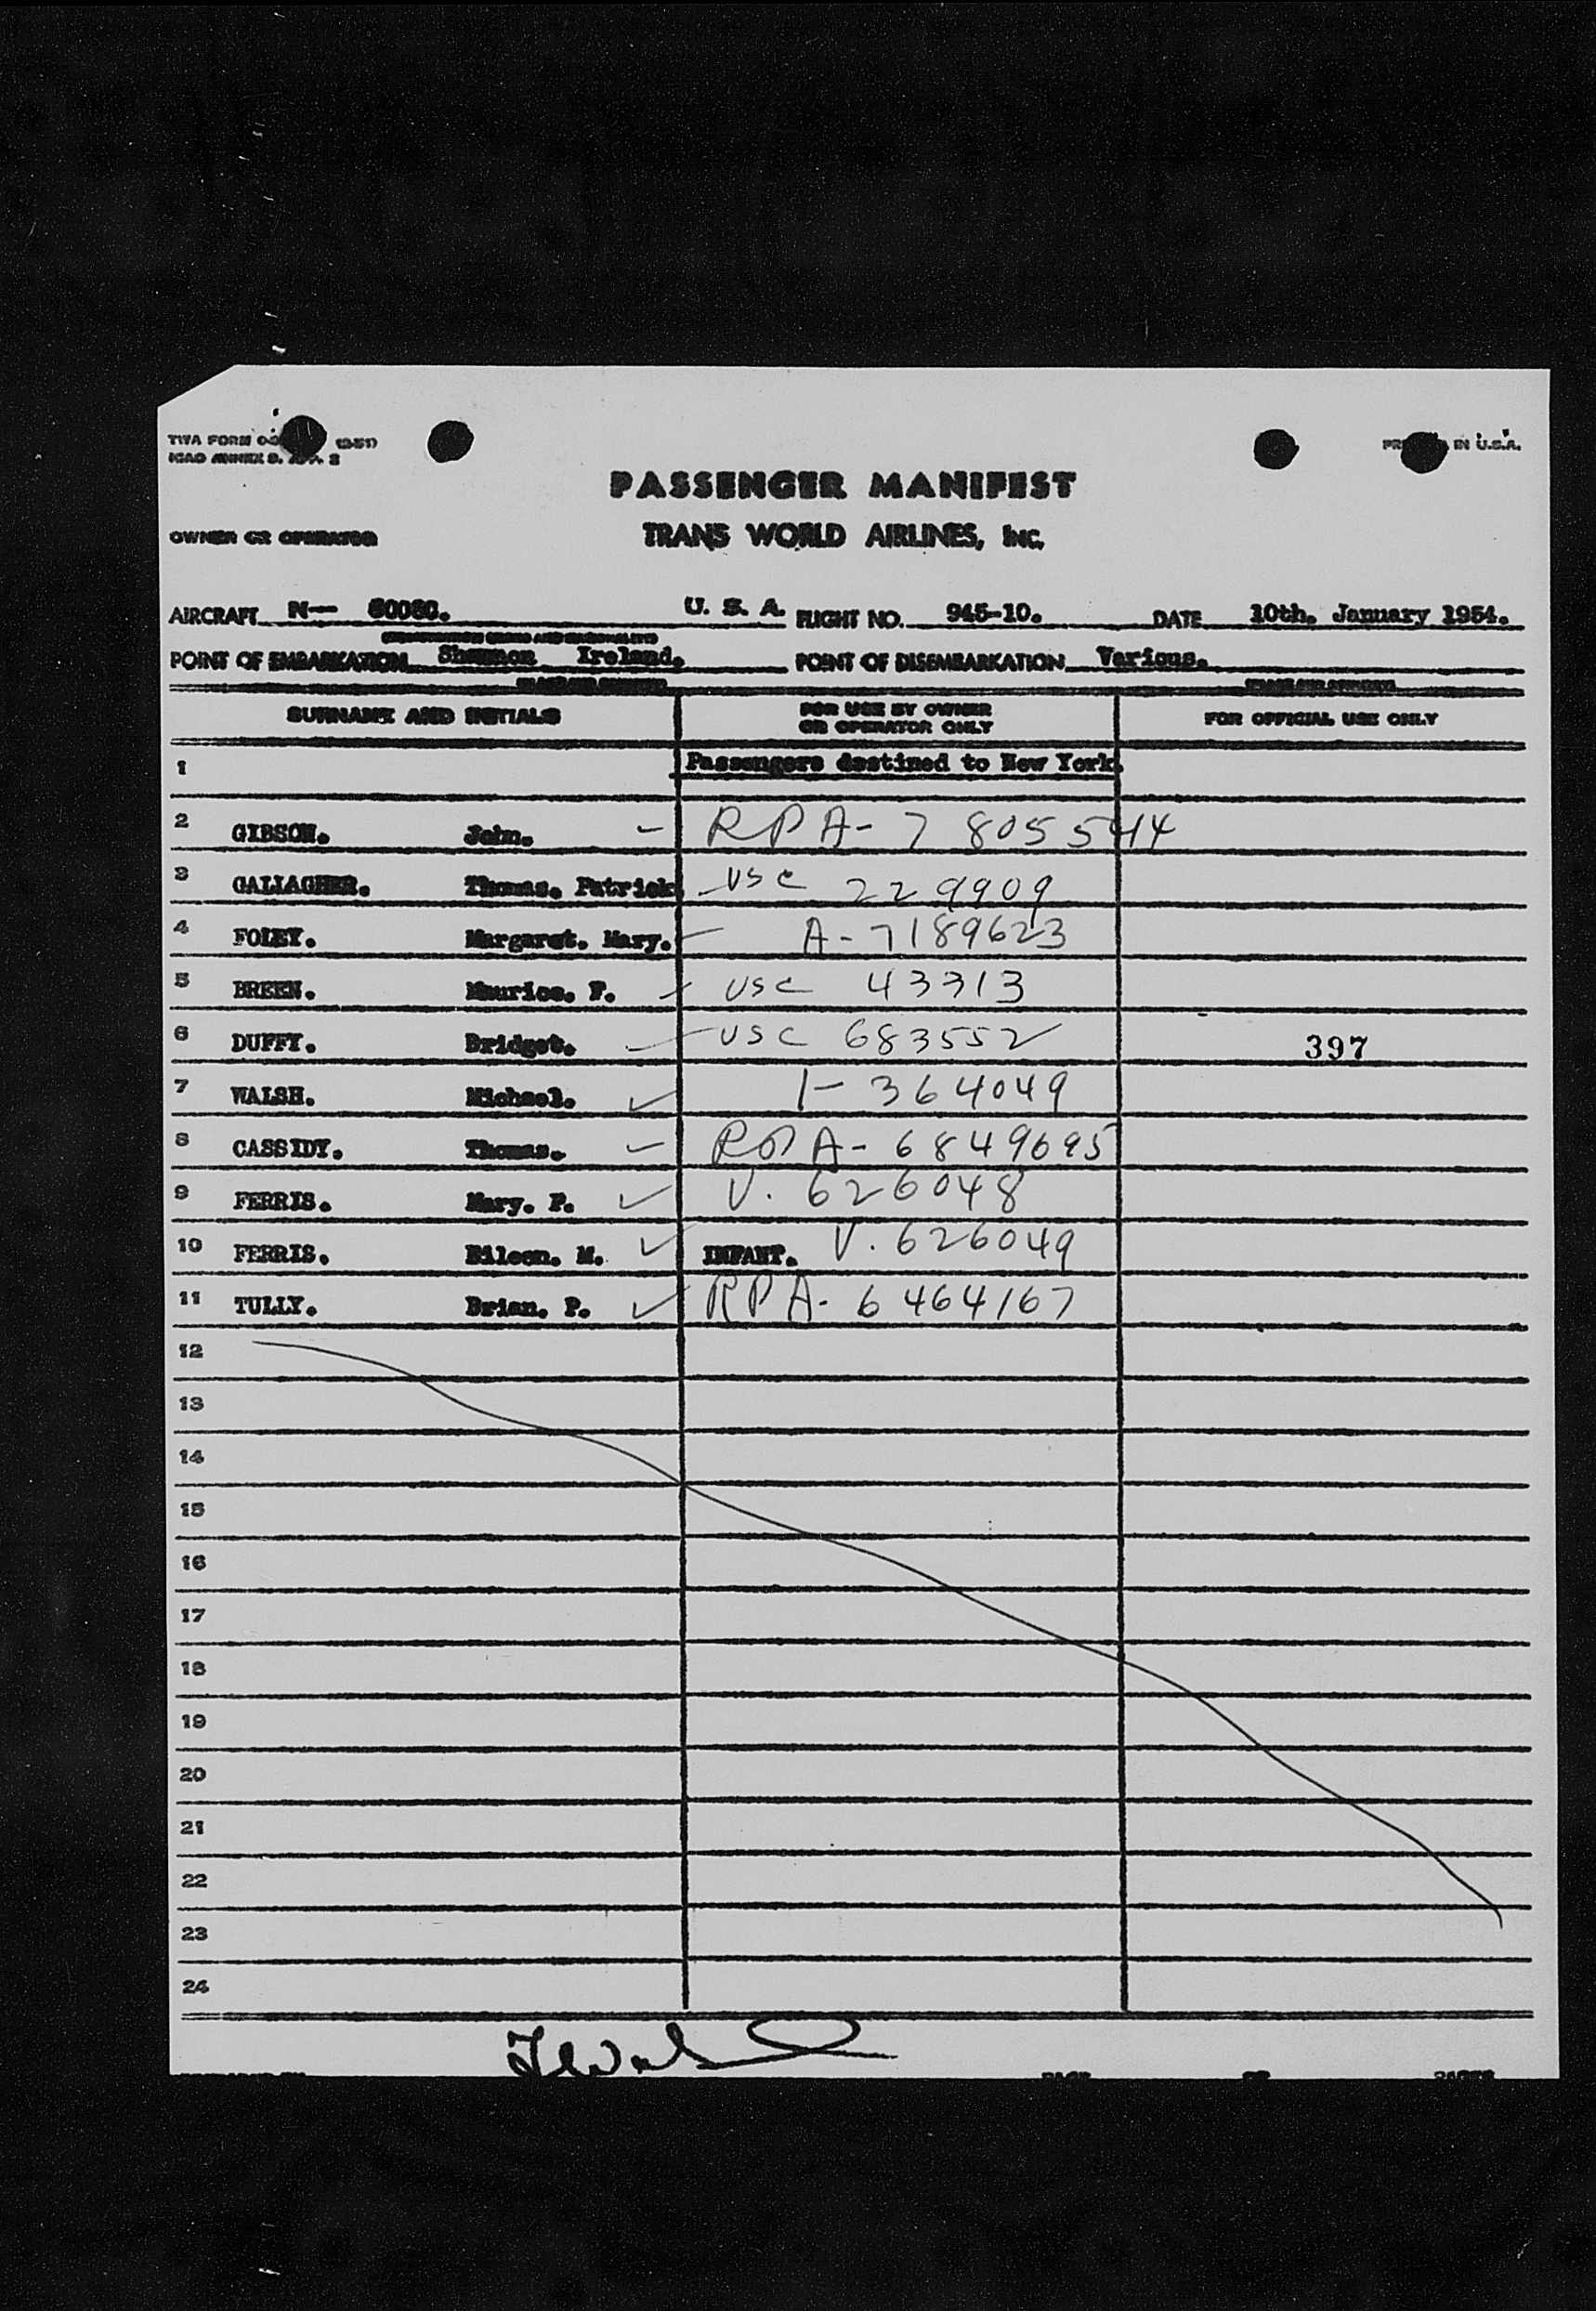 TWA FORM
ICAO ANNEX 9. APP. 2
PRINTED IN U.S.A.
PASSENGER MANIFEST
OWNER OR OPERATOR TRANS WORLD AIRLINES, INC.
AIRCRAFT N— U. S. A. FLIGHT NO. 945-10. DATE 10th. January 1954.
POINT OF EMBARKATION Shannon Ireland. POINT OF DISEMBARKATION Various.
SURNAME AND INITIALS
FOR USE BY OWNER
OR OPERATOR ONLY
FOR OFFICIAL USE ONLY
1 Passengers destined to New York.
2 GIBSON. John. RPA-7 805544
3 GALLAGHER. Thomas. Patrick. USC 229909
4 FOLEY. Margaret. Mary. A-7189623
5 BREEN. Maurice. F. USC 43313
6 DUFFY. Bridget. USC 683552 397
7 WALSH. Michael. 1-364049
8 CASSIDY. Thomas. RPA-6849695
9 FERRIS. Mary. P. V. 626048
10 FERRIS. Eileen. M. INFANT. V. 626049
11 TULLY. Brian. P. RPA-6464167
12
13
14
15
16
17
18
19
20
21
22
23
24